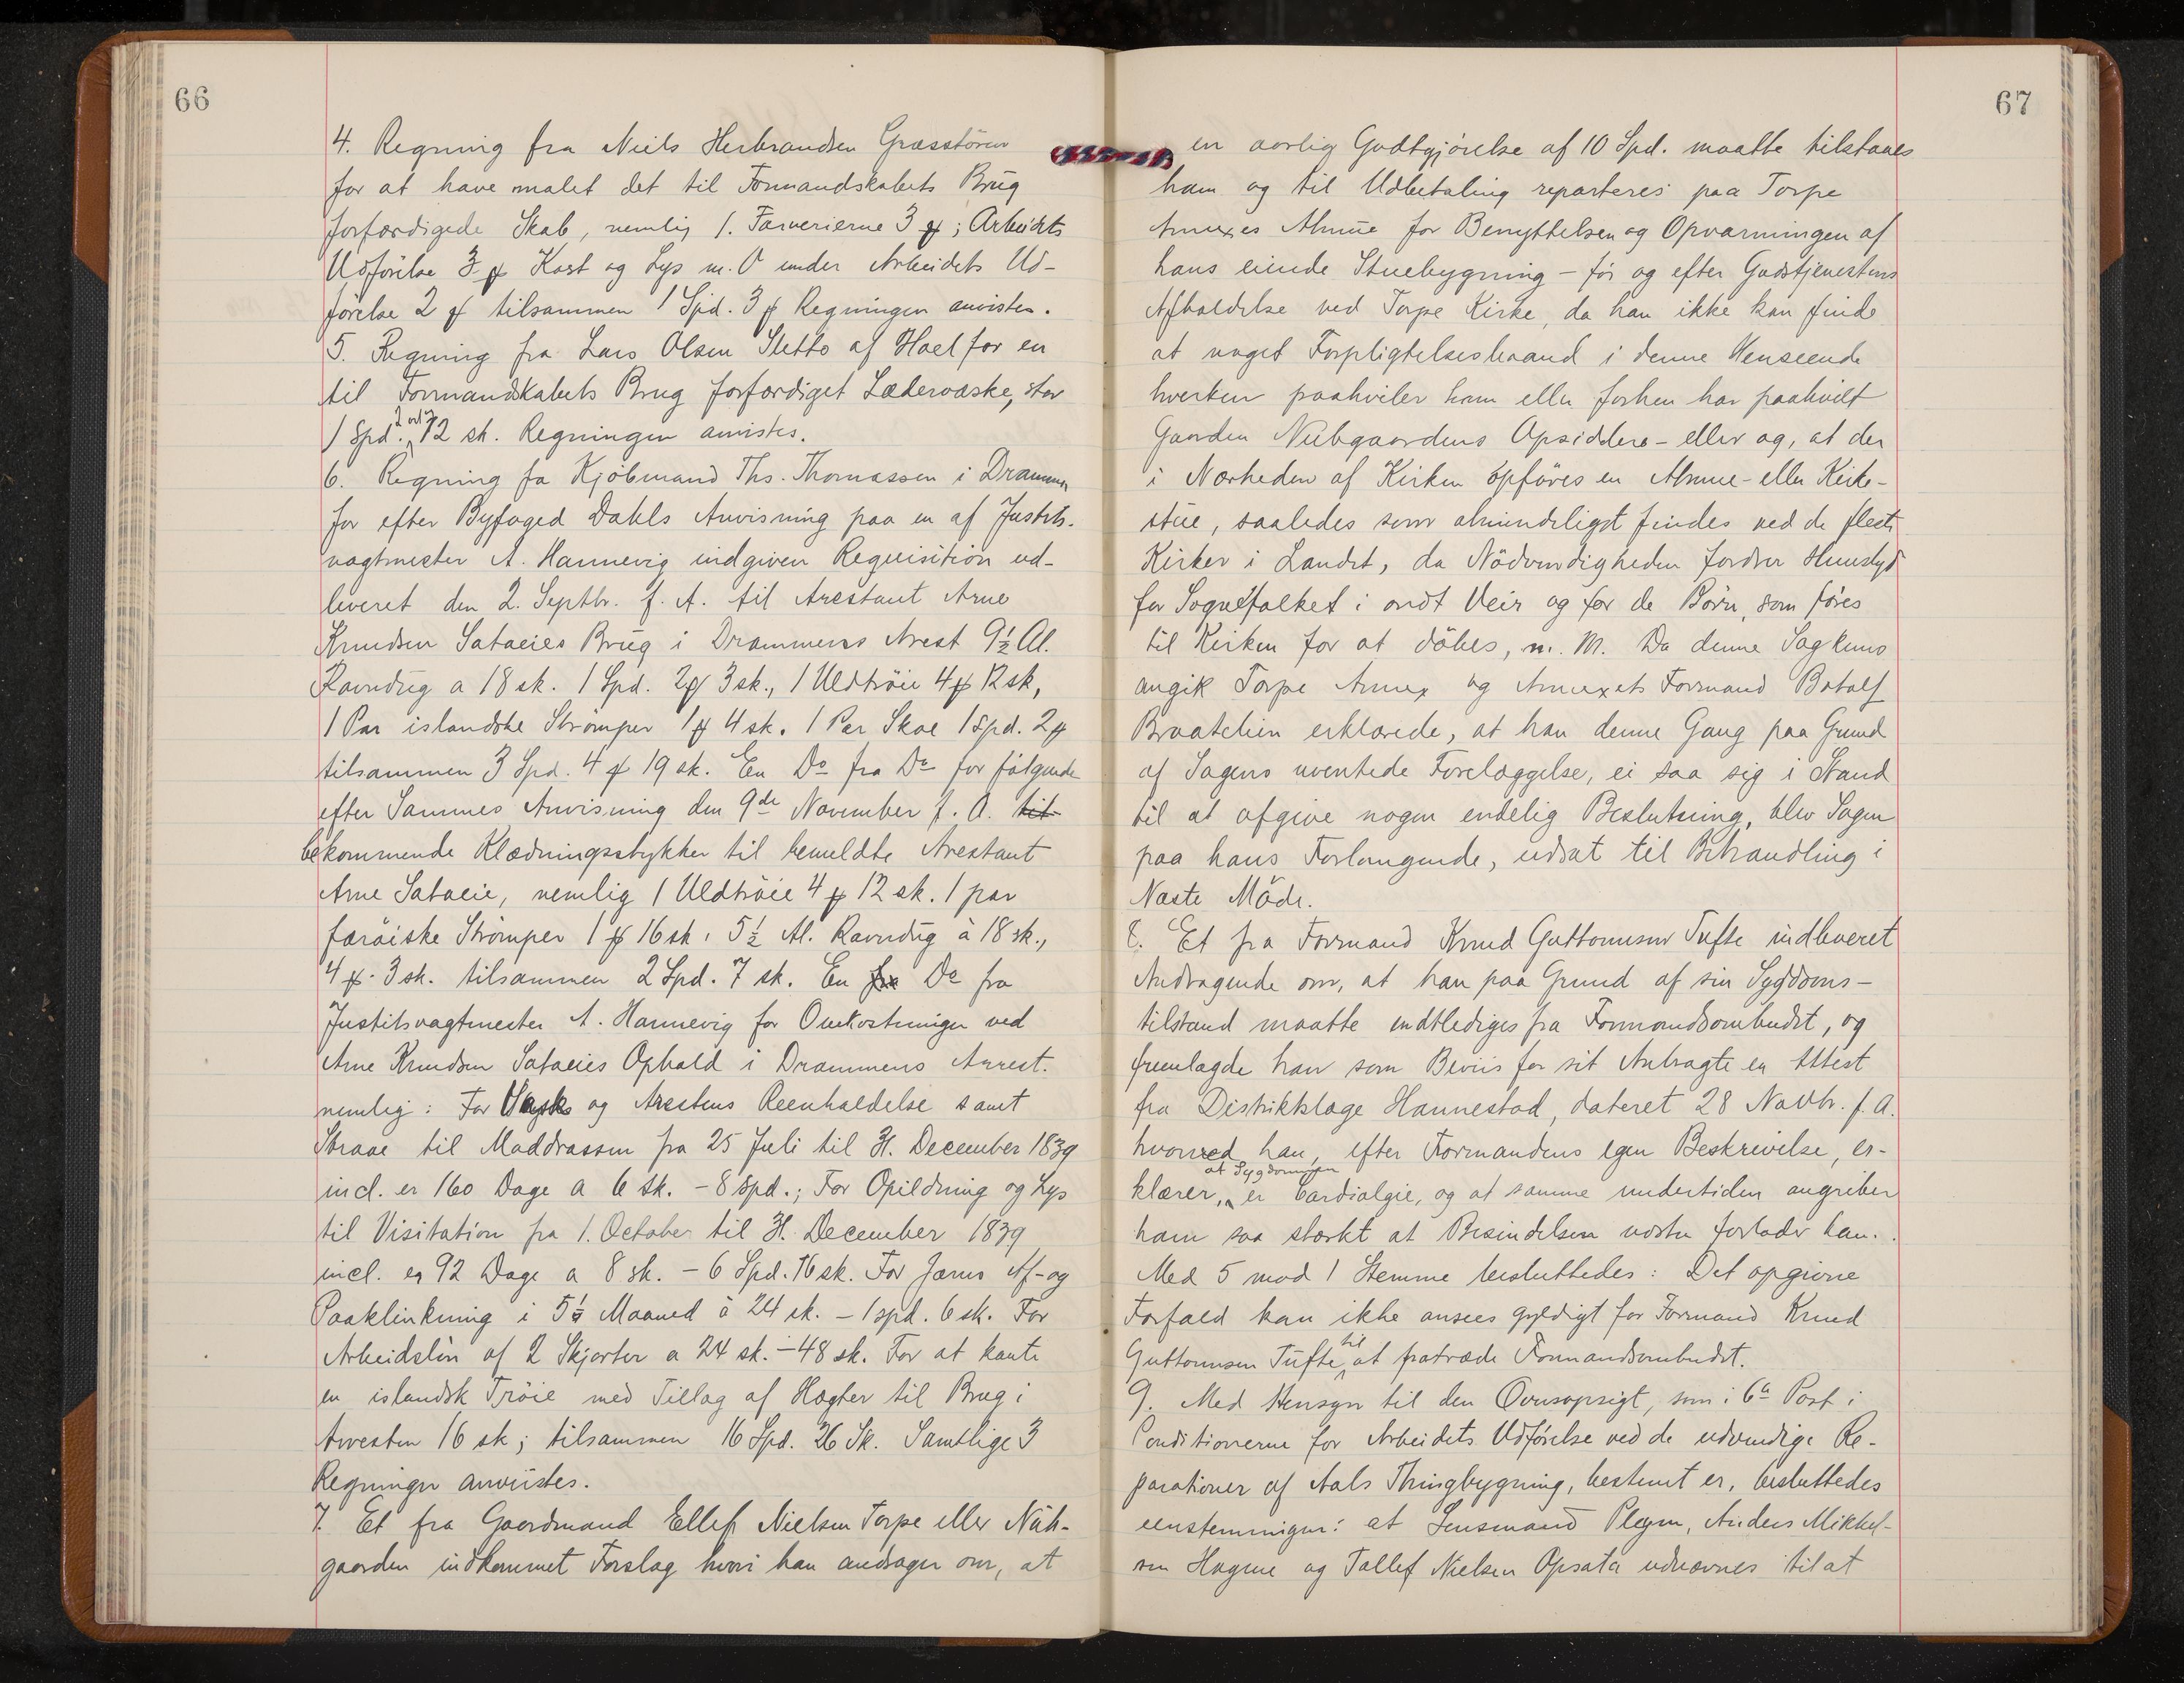 66
4. Regning fra Niels Herbrandsen Græsstören
for at have malet det til Formandskabets Brug
forfærdigede Skab, nemlig 1. Farverierne 3 ℔; Arbeidets
Udförelse 3 ℔ Kost og Lys m. V under Arbeidets Ud-
förelse 2 ℔ tilsammen 1 Spd. 3 ℔ Regningen anvistes.
5. Regning fra Lars Olsen Sletto af Hoel for en
til Formandskabets Brug forfærdiget Lædervæske, stor
1 Spd. 2 ort 12 sk. Regningen anvistes.
6. Regning fa Kjöbmand Ths. Thomassen i Drammen
for efter Byfoged Dahls Anvisning paa en af Justits-
vagtmester A. Hannevig indgiven Requisition ud-
leveret den 2. Septbr. f. A. til Arestant Arne
Knudsen Sataeies Brug i Drammens Arest 9½ Al.
Ravndug a 18 sk. 1 Spd. 2 ℔ 3 sk., 1 Uldtröie 4 ℔ 12 sk,
1 Par islandske Strömper 1 ℔ 4 sk. 1 Par Skoe 1 Spd. 2 ℔
tilsammen 3 Spd. 4 ℔ 19 sk. En Do fra Do for fölgende
efter Sammes Anvisning den 9de November f. A. til
bekommende Klædningsstykker til bemeldte Arestant
Arne Sataeie, nemlig 1 Uldtröie 4 ℔ 12 sk. 1 par
færöiske Strömper 1 ℔ 16 sk. 5½ Al. Ravndug à 18 sk.,
4 ℔. 3 sk. tilsammen 2 Spd. 7 sk. En fra Do fra
Justitsvagtmester A. Hannevig for Omkostninger ved
Arne Knudsen Sataeies Ophold i Drammens Arrest.
nemlig: For Vask og Arestens Reenholdelse samt
Straae til Maddrassen fra 25 Juli til 31. December 1839
incl. er 160 Dage a 6 sk. - 8 Spd.; For Opildning og Lys
til Visitation fra 1. October til 31. December 1839
incl. er 92 Dage a 8 sk. - 6 Spd. 16 sk. For Jærns Af- og
Paaklinkning i 5¼ Maaned à 24 sk. - 1 spd. 6 sk. For
Arbeidslön af 2 Skjorter a 24 sk. - 48 sk. For at kante
en islandsk Tröie med Tillæg af Hægter til Brug i
Arresten 16 sk; tilsammen 16 Spd. 26 Sk. Samtlige 3
Regninger anviistes.
7. Et fra Gaardmand Ellef Nielsen Torpe eller Nüb-
gaarden indkommet Forslag hvori han andrager om, at
67
en aarlig Godtgjörelse af 10 Spd. maatte tilstaaes
ham og til Udbetaling reparteres paa Torpe
Annexes Almue for Benyttelsen og Opvarmningen af
hans eiende Stuebygning - för og efter Gudstjenestens
Afholdelse ved Torpe Kirke, da han ikke kan finde
at noget Forpligtelsesbaand i denne Henseende
hverken paahviler ham eller forhen har paahvilt
Gaarden Nübgaardens Opsiddere - eller og, at der
i Nærheden af Kirken opföres en Almue- eller Kirke-
stue, saaledes som almindeligst findes ved de fleste
Kirker i Landet, da Nödvendigheden fordrer Huuslyd
for Sognefolket i ondt Veir og for de Börn, som föres
til Kirken for at döbes, m. M. Da denne Sag kuns
angik Torpe Annex og Annexets Formand Botolf
Braatelien erklærede, at han denne Gang paa Grund
af Sagens uventede Forelæggelse, ei saa sig i Stand
til at afgive nogen endelig Beslutning, blev Sagen
paa hans Forlangende, udsat til Behandling i
Næste Möde.
8. Et fra Formand Knud Guttormsen Tufte indleveret
Andragende om, at han paa Grund af sin Sygdoms-
tilstand maatte endtlediges fra Formandsombudet, og
fremlagde han som Beviis for sit Andragte en Attest
fra Distriktslæge Hannestad, dateret 28 Novbr. f. A.
hvorved han, efter Formandens egen Beskrivelse, er-
klærer, at Sygdommen er Cardialgie, og at samme undertiden angriber
ham saa stærkt at Besindelsen næsten forlader ham.
Med 5 mod 1 Stemme besluttedes: Det opgivne
Forfald kan ikke ansees gyldigt for Formand Knud
Guttormsen Tufte til at fratræde Formandsombudet.
9. Med Hensyn til den Overopsigt, som i 6te Post i
Conditionerne for Arbeidets Udförelse ved de udvendige Re-
parationer af Aals Thingbygning, bestemt er, besluttedes
eenstemmigen: at Lensmand Plejm, Anders Mikkel-
sen Hagene og Tollef Nielsen Opsata udnævnes til at